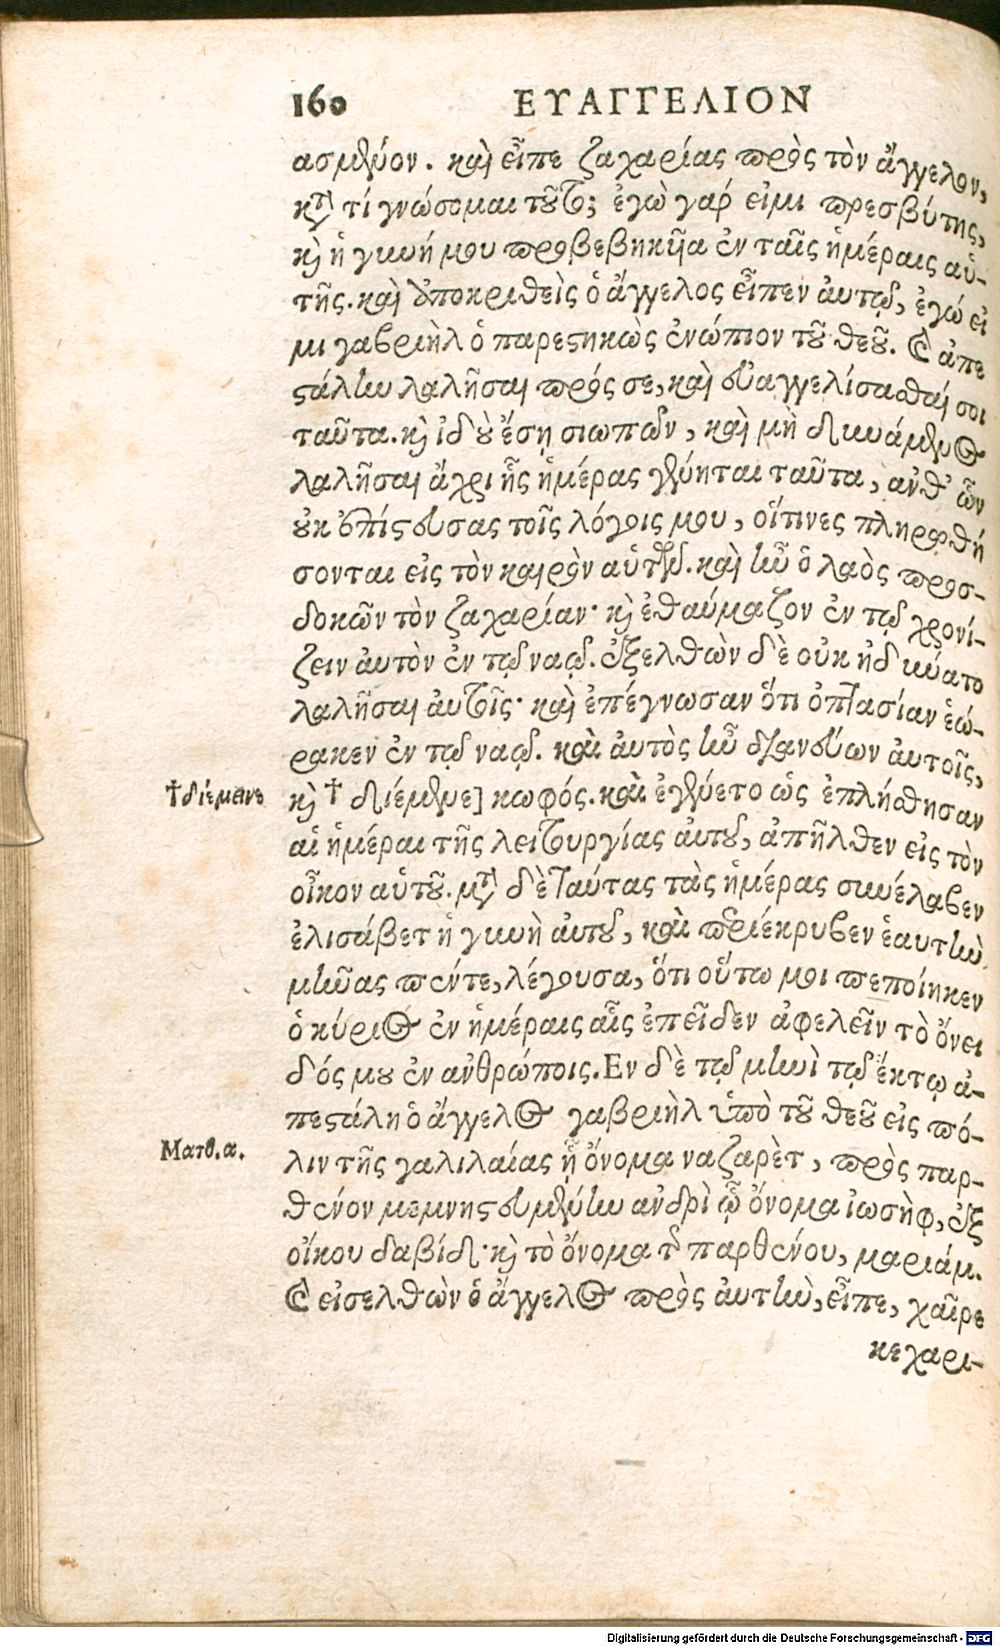 160 ΕΥΑΓΓΕΛΙΟΝ
ασμένον. καὶ εἶπε ζαχαρίας πρὸς τὸν ἄγγελον,
κτ τί γνώσομαι τοῦτο; ἐγὼ γάρ εἰμι πρεσβύτης,
κὶ ἡ γυνή μου προβεβηκῦα ἐν ταῖς ἡμέραις αὑ-
τῆς. καὶ ἀποκριθεὶς ὁ ἄγγελος εἶπεν ἀυτῷ, ἐγώ εἰ
μι γαβριὴλ ὁ παρεστηκὼς ἐνώπιον τοῦ θεοῦ. Καὶ ἀπε
στάλην λαλῆσαι πρός σε, καὶ εὐαγγελίσασθαί σοι
ταῦτα. κὶ ἰδοὺ ἔσῃ σιωπῶν, καὶ μὴ δυνάμενος
λαλῆσαι ἄχρι ἧς ἡμέρας γένηται ταῦτα, ανθ’ ὧν
οὐκ ἐπίστευσας τοῖς λόγοις μου, οἵτινες πληρωθή
σονται εἰς τὸν καιρὸν αὑτῶν. καὶ ἦν ὁ λαὸς προσ-
δοκῶν τὸν ζαχαρίαν· κὶ ἐθαύμαζον ἐν τῷ χρονί-
ζειν ἀυτὸν ἐν τῷ ναῷ. ἐξελθὼν δὲ οὐκ ἠδύνατο
λαλῆσαι ἀυτοῖς· καὶ ἐπέγνωσαν ὅτι ὀπτασίαν ἑώ-
ρακεν ἐν τῷ ναῷ. καὶ ἀυτὸς ἦν διανεύων ἀυτοῖς,
†διέμεινε κὶ † διέμενε] κωφός. καὶ ἐγένετο ὡς ἐπλήσθησαν
αἱ ἡμέραι τῆς λειτουργίας ἀυτοῦ, ἀπῆλθεν εἰς τὸν
οἶκον αὑτοῦ. μτ δὲ ταύτας τὰς ἡμέρας συνέλαβεν
ἐλισάβετ ἡ γυνὴ ἀυτοῦ, καὶ περιέκρυβεν ἑαυτὴν
μῆνας πέντε, λέγουσα, ὅτι οὕτω μοι πεποίηκεν
ὁ κύριος ἐν ἡμέραις αἷς ἐπεῖδεν ἀφελεῖν τὸ ὄνει
δός μου ἐν ανθρώποις. Εν δὲ τῷ μηνὶ τῷ ἕκτῳ ἀ-
πεστάλη ὁ ἄγγελος γαβριὴλ ὑπὸ τοῦ θεοῦ εἰς πό-
Ματθ. α. λιν τῆς γαλιλαίας ᾗ ὄνομα ναζαρὲτ, πρὸς παρ-
θένον μεμνηστευμένην ανδρὶ ᾧ ὄνομα ἰωσὴφ, ἐξ
οἴκου δαβίδ· κὶ τὸ ὄνομα τῆς παρθένου, μαριάμ.
Καὶ εἰσελθὼν ὁ ἄγγελος πρὸς ἀυτὴν, εἶπε, χαῖρε
κεχαρι-
Digitalisierung gefördert durch die Deutsche Forschungsgemeinschaft - DFG